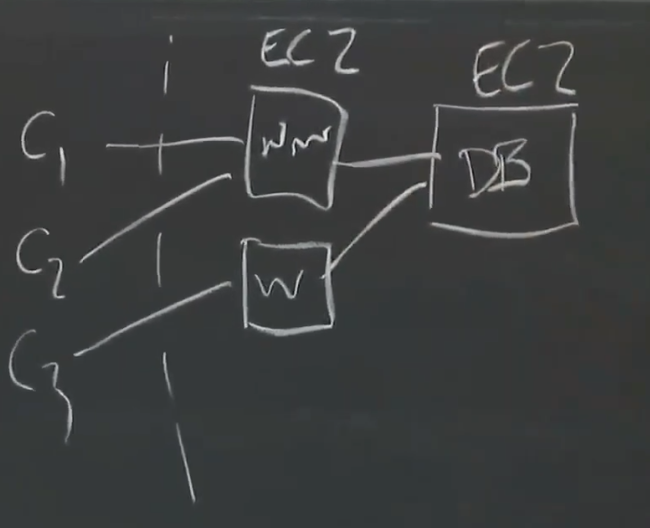 EC2 EC2
C1 WWW DB
C2
W
C3